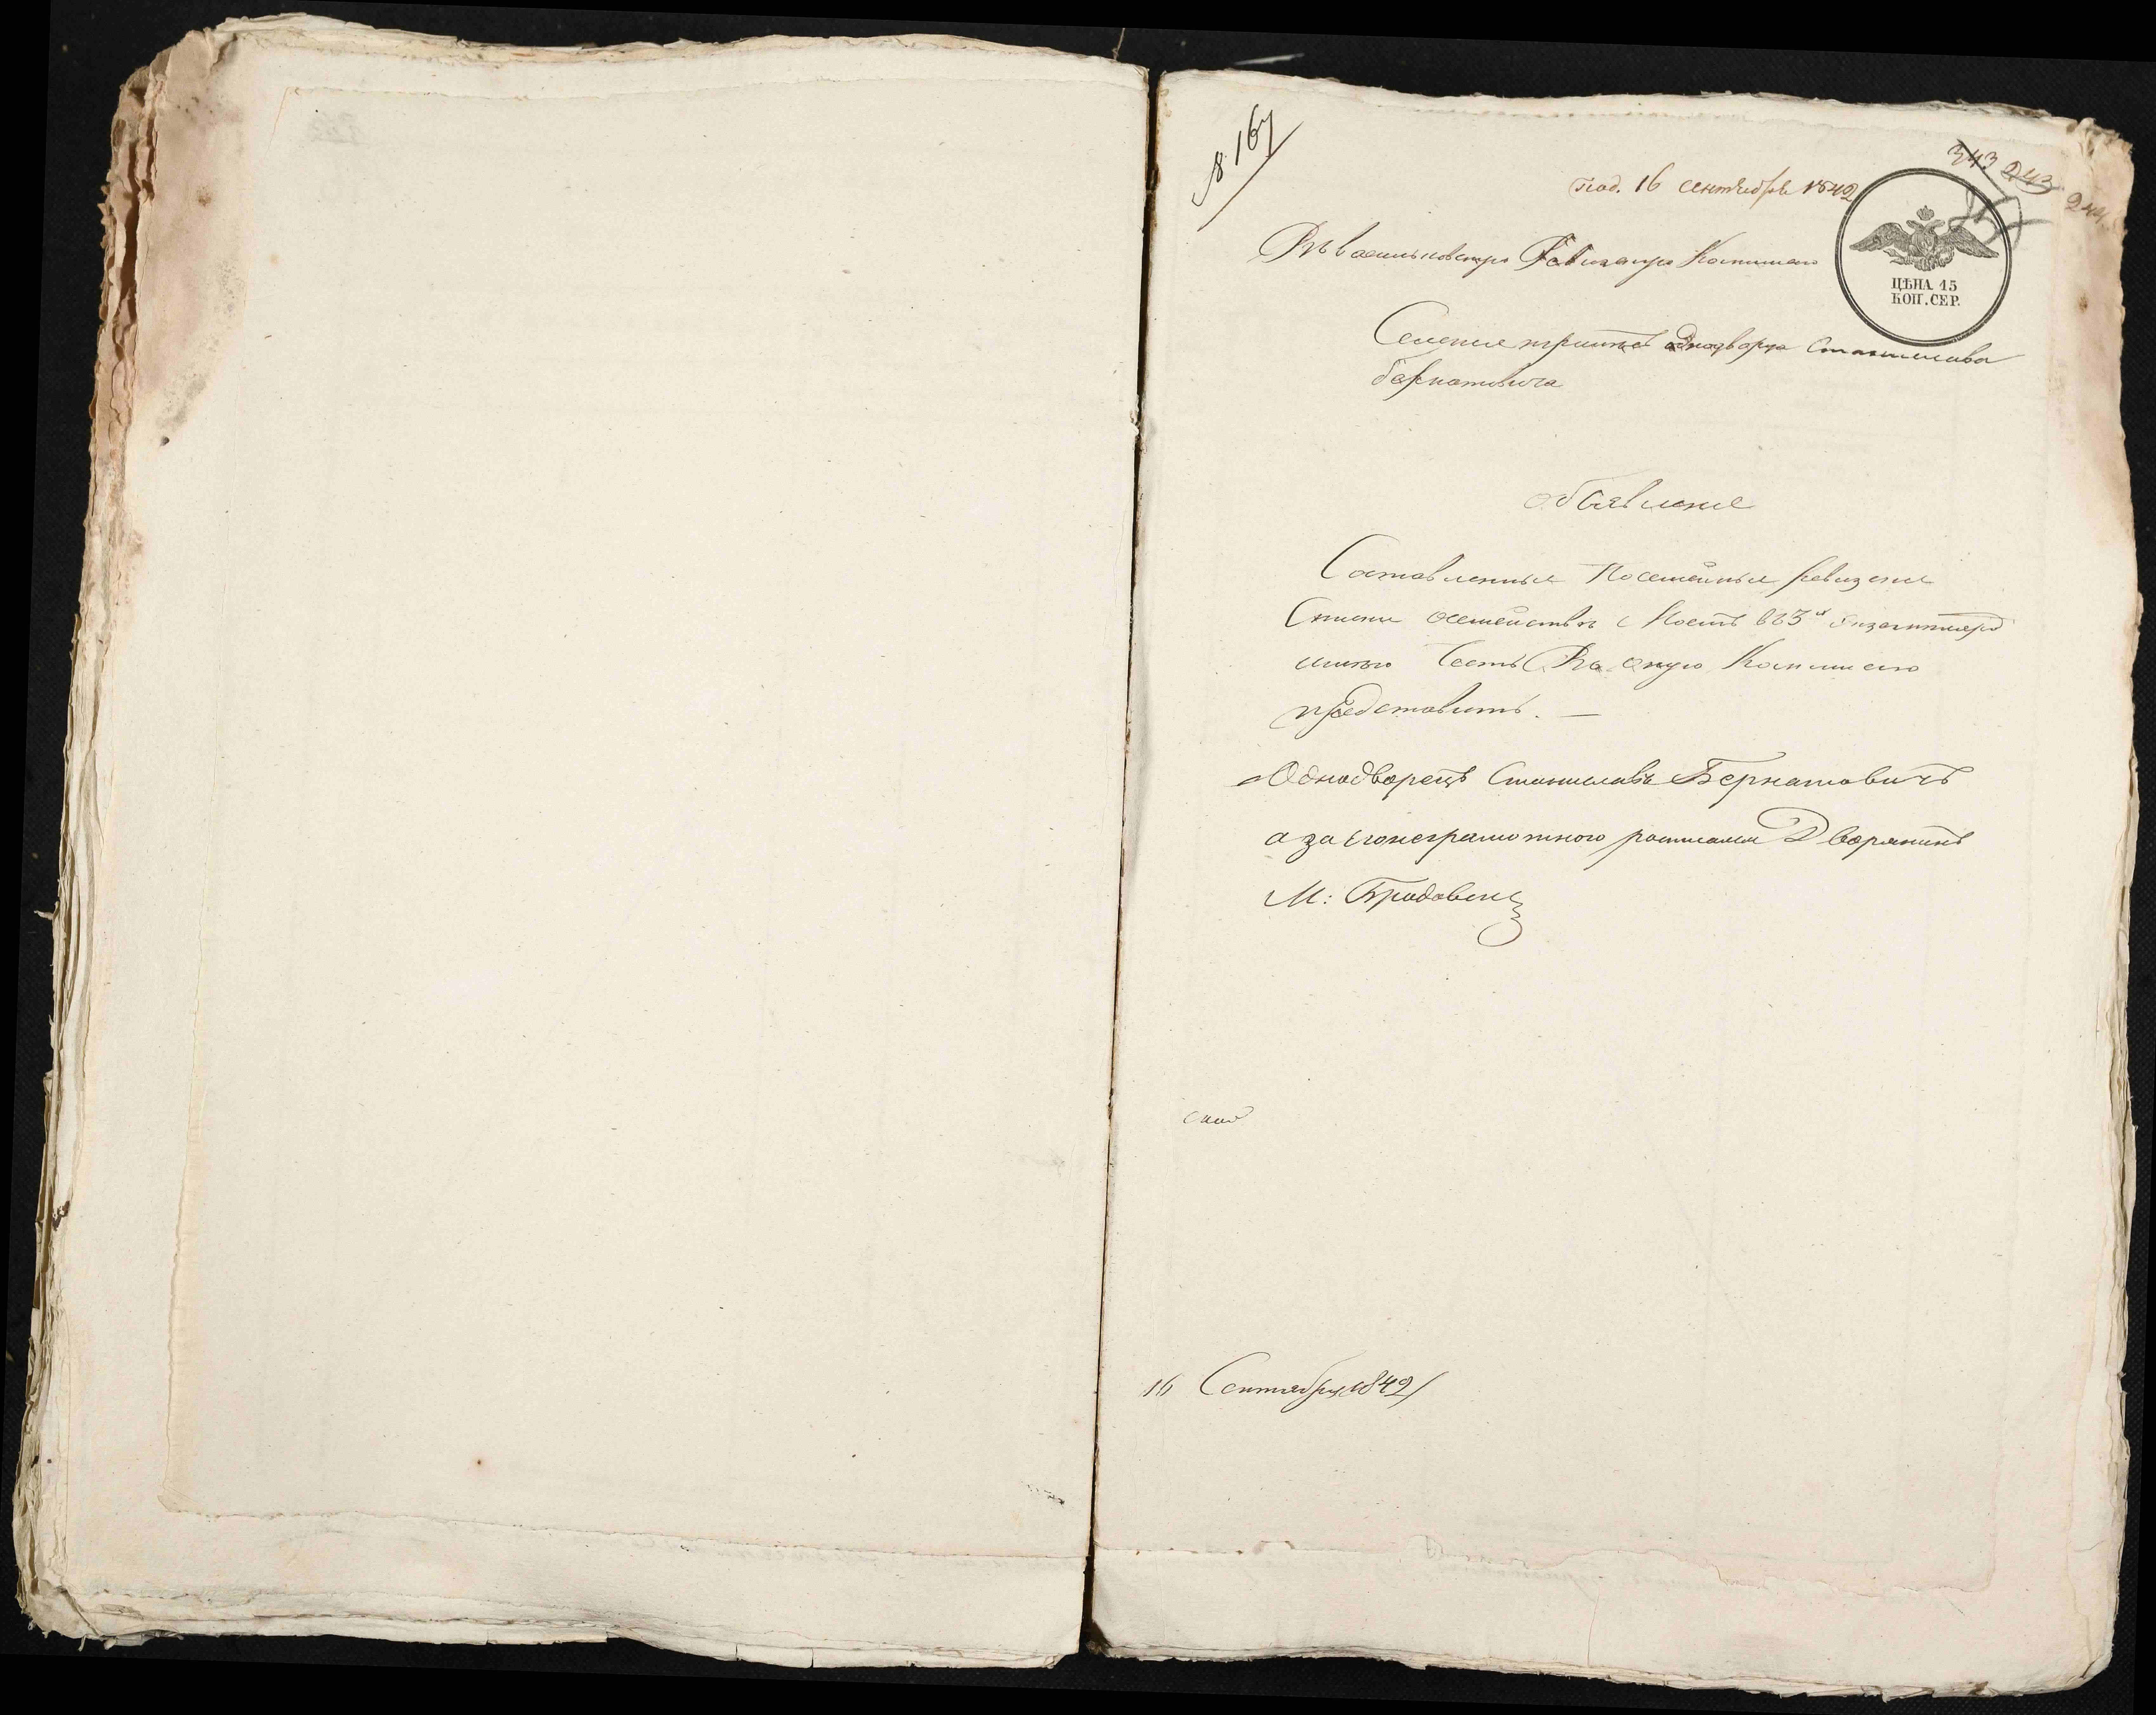 № 167
343 243
244
под. 16 сентября 1842
ЦѢНА 15
КОП. СЕР.
Въ васильковскую Ревизскую Комиссию
Селения однодворца Станислава
бернатовича
объявление
Составленные Посемейные ревизские
Списки семейства в 3х экземплярах
имею честь Въ оную Комиссию
представить. —
Однодворецъ Станиславъ Бернатовичъ
а за его неграмотного росписался Дворянинъ
М:
16 Сентября 1842